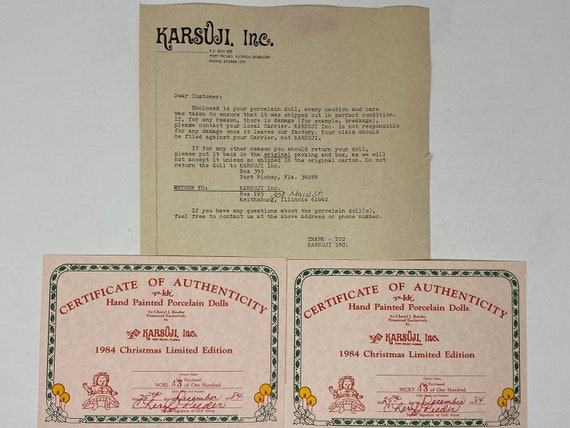 KARSUJI, Inc.
P.O. BOX 395
PORT RICHEY, FLORIDA
PHONE:
Dear Customer:
Enclosed is your porcelain doll, every caution and care
was taken to ensure that it was shipped out in perfect condition.
If, for any reason, there is damage (for example, breakage),
please contact your local Carrier. KARSUJI Inc. is not responsible
for any damage once it leaves our factory. Your claim should
be filed against your Carrier, not KARSUJI.
If for any other reason you should return your doll,
please put it back in the original packing and box, as we will
not accept it unless so shipped in the original carton. Do not
return the doll to KARSUJI Inc.
Box 395
Port Richey, Fla. 34288
RETURN TO: KARSUJI Inc.
Box 195 Main St.
Keithsburg, Illinois 61442
If you have any questions about the porcelain doll(s),
feel free to contact us at the above address or phone number.
THANK - YOU
KARSUJI INC.
CERTIFICATE OF AUTHENTICITY
Hand Painted Porcelain Dolls
by Cheryl J. Reeder
Presented Exclusively
by
KARSUJI, Inc.
PORT RICHEY, FLORIDA
1984 Christmas Limited Edition
Purchased
NOEL 43 of One Hundred
25th December 84
Cheryl Reeder
Signature of Doll Artist
CERTIFICATE OF AUTHENTICITY
Hand Painted Porcelain Dolls
by Cheryl J. Reeder
Presented Exclusively
by
KARSUJI, Inc.
PORT RICHEY, FLORIDA
1984 Christmas Limited Edition
Purchased
NICKY 43 of One Hundred
25th December 84
Cheryl Reeder
Signature of Doll Artist